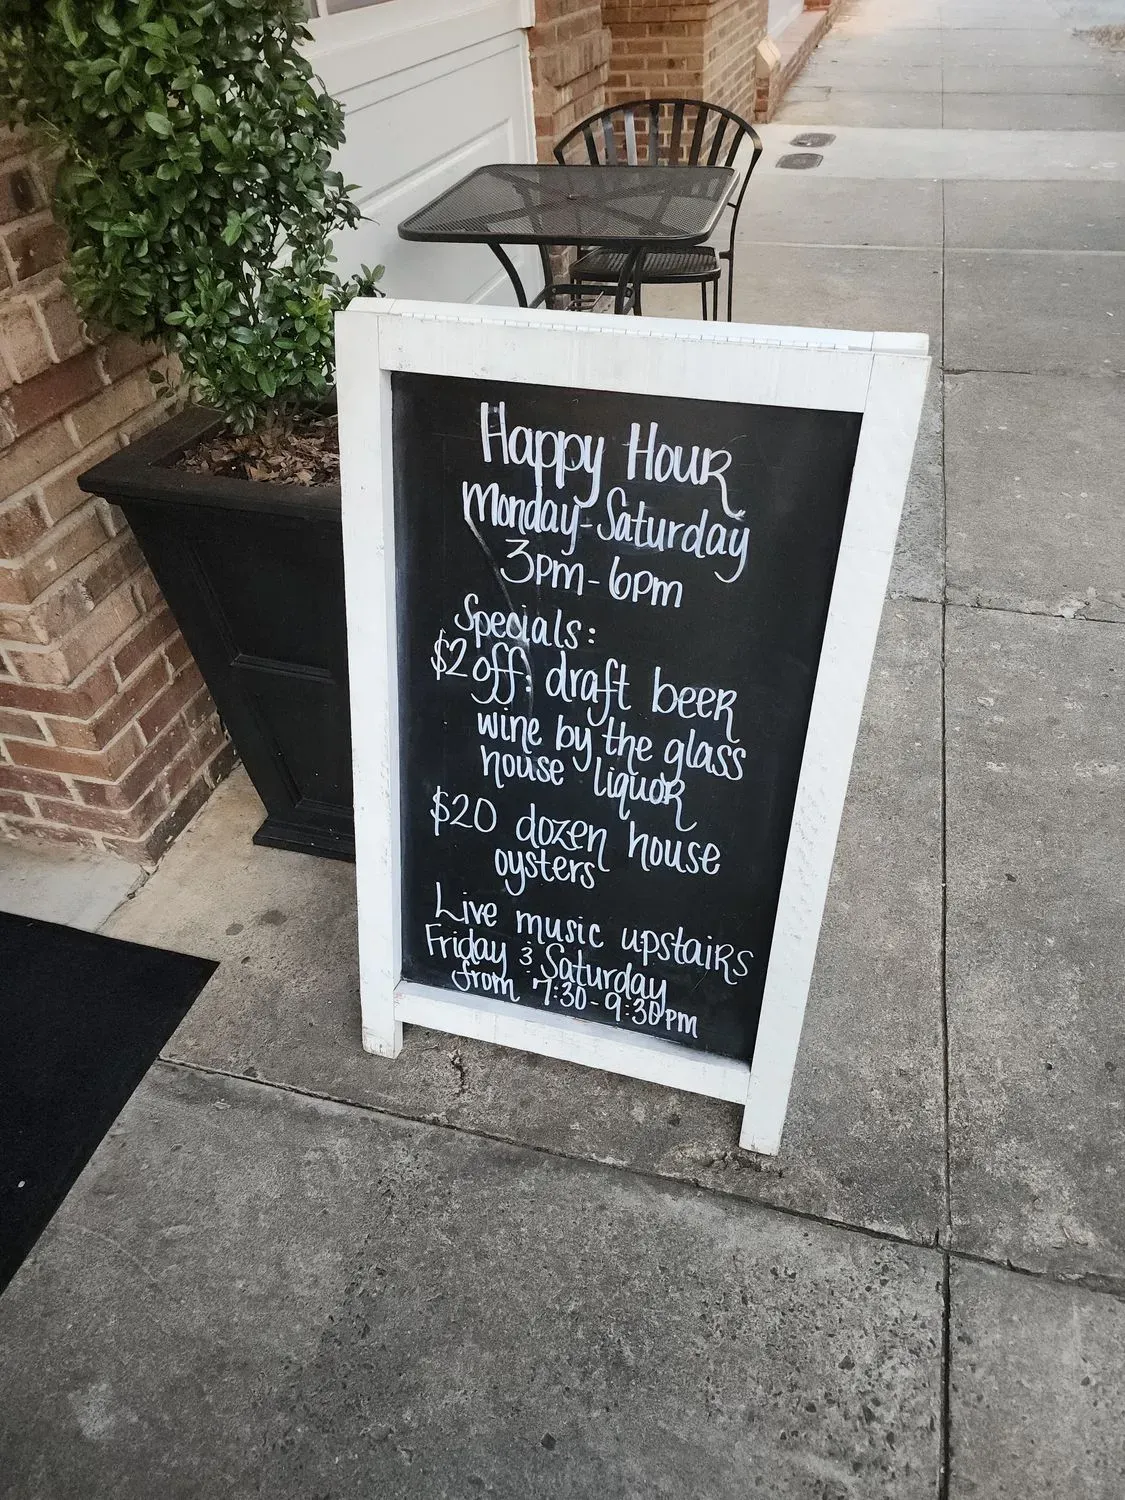 Happy Hour
Monday-Saturday
3pm-6pm
Specials:
$2 off: draft beer
wine by the glass
house liquor
$20 dozen house
oysters
Live music upstairs
Friday & Saturday
from 7:30-9:30pm